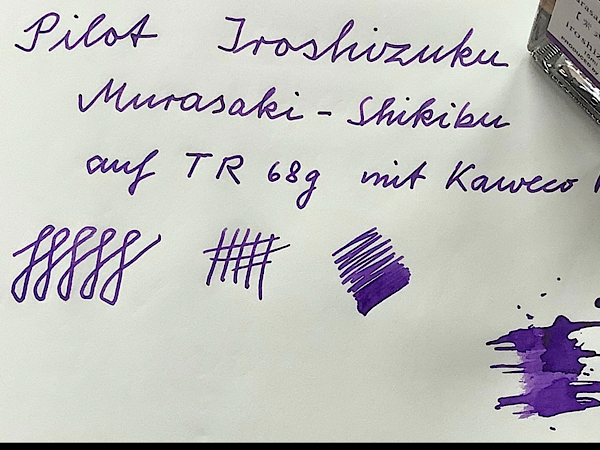 Pilot Iroshizuku
Murasaki - Shikibu
auf TR 68g mit Kaweco